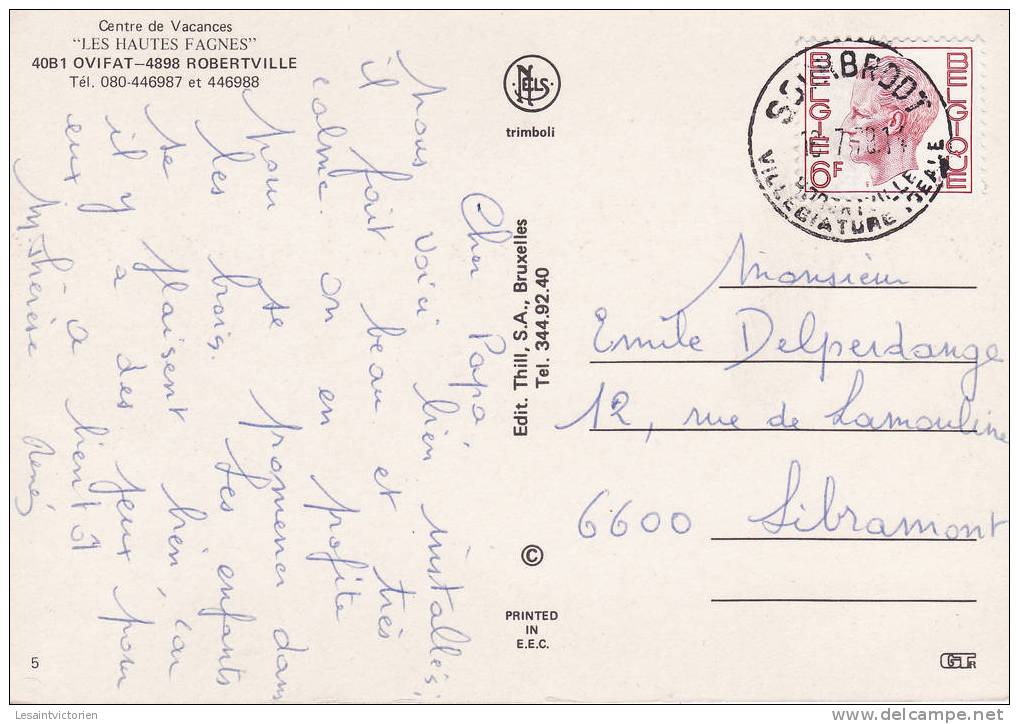 Centre de Vacances
"LES HAUTES FAGNES"
40B1 OVIFAT-4898 ROBERTVILLE
Tél. 080-446987 et 446988
NELS
trimboli
BELGIE
BELGIQUE
6F
VILLEGIATURE IDEALE
Cher Papa
nous voici bien installés;
il fait beau et très
calme. on en profite
pour se promener dans
les bois. Les enfants
se plaisent bien car
il y a des jeux pour
eux à bientôt
M Thérèse René
Edit. Thill, S.A., Bruxelles
Tel. 344.92.40
Monsieur
Emile Delperdange
12, rue de Lamouline
6600 Libramont
©
PRINTED
IN
E.E.C.
5
Lesaintvictorien
www.delcampe.net